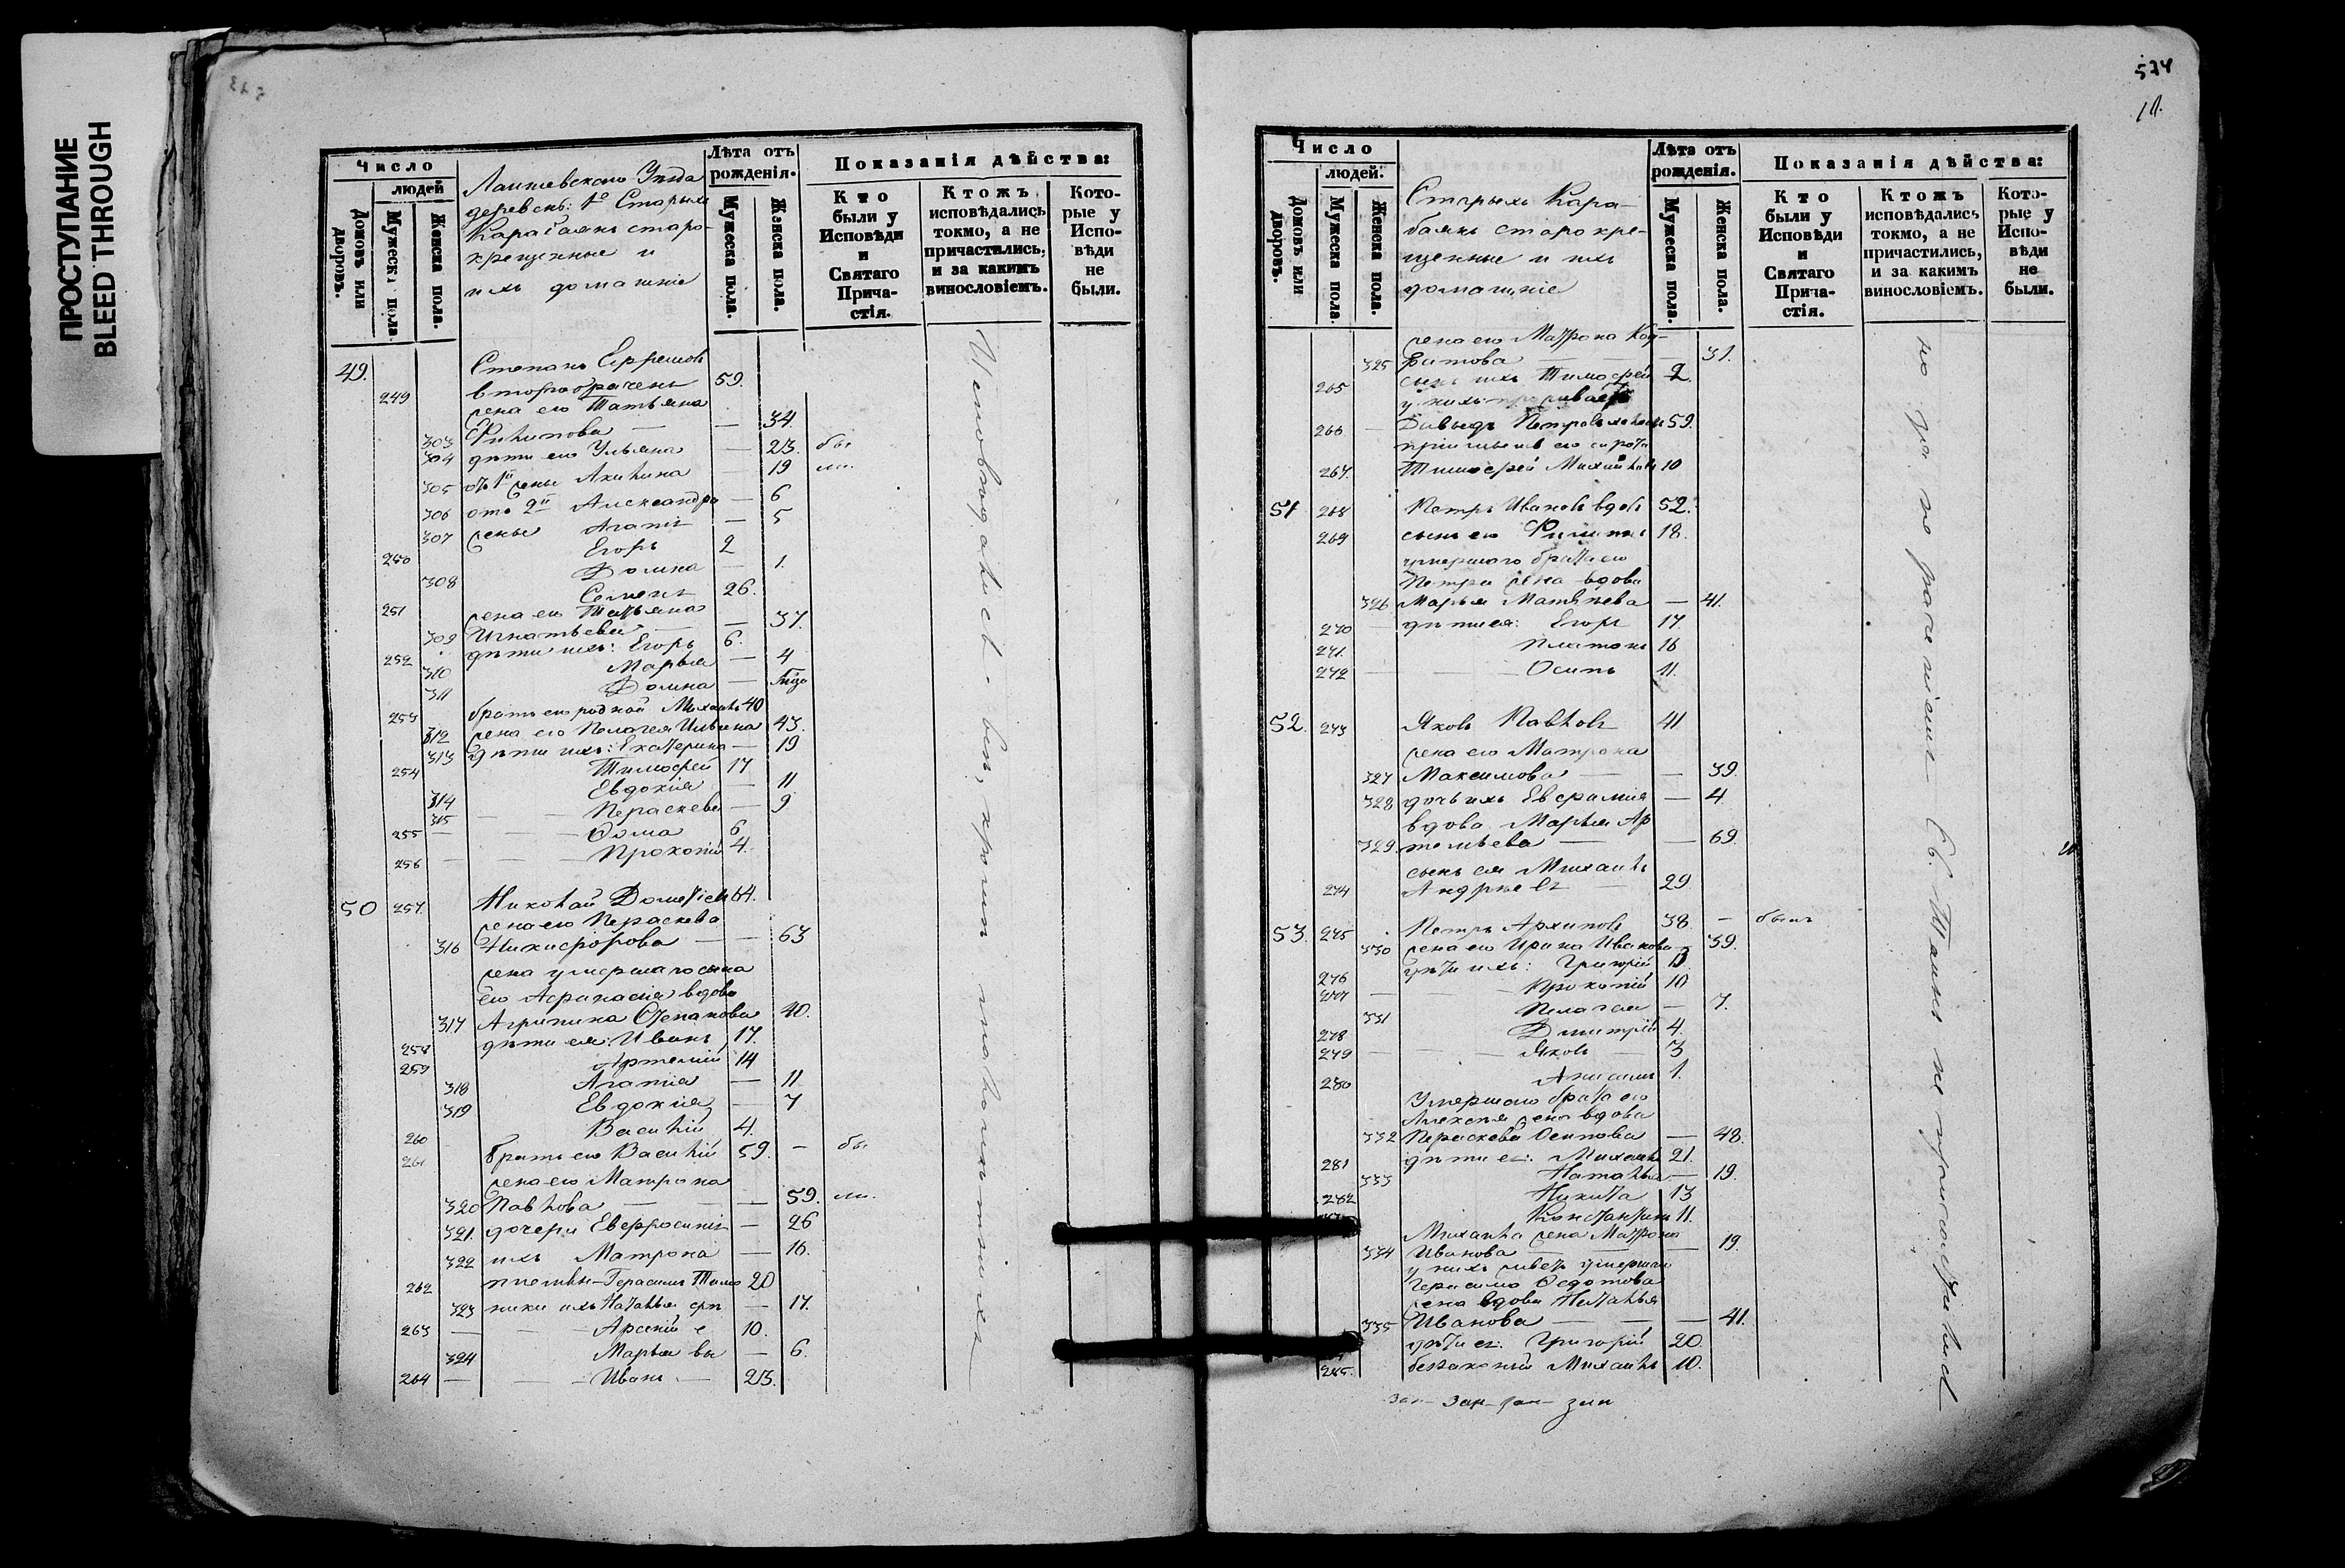 ПРОСТУПАНИЕ
BLEED THROUGH
Число
людей
Домовъ или дворовъ.
Мужеска пола.
Женска пола.
Лаишевскаго Уѣзда
деревень: 1е Старыхъ
Карабаянъ старо-
крещенные и
ихъ домашніе
Лѣта отъ рожденія.
Мужеска пола.
Женска пола.
Показанія дѣйства:
Кто были у Исповѣди и Святаго Прича-стія.
Ктожъ исповѣдались токмо, а не причастились, и за какимъ винословіемъ.
Кото-рые у Испо-вѣди не были.
49. Степанъ Ефремовъ
249 второбраченъ 59.
жена его Татьяна
303 Филипова — — 34
304 дѣти его Ульяна — 23. бы
305 отъ 1й жены Акилина 19 ли.
306 отъ 2й Александра — 6
307 жены Агапія — 5
250 Егоръ 2
308 Домна — 1.
251 Семенъ 26.
жена его Татьяна
309 Игнатьева — — 37.
252 дѣти ихъ: Егоръ 6.
310 Марья — 4
311 Домна —
253 братъ его родной Михаилъ 40
312 жена его Пелагея Ильина 43.
313 дѣти ихъ: Екатерина — 19
254 Тимофей 17
314 Евдокія — 11
315 Параскева — 9
255 — — Ѳома 6
256 — — Прокопій 4.
50 257. Николай Дометіевъ 64.
жена его Пераскева
316 Никифорова — — 63
жена умершаго сына
его Афанасія вдова
317 Агрипина Степанова 40.
258 дѣти ея: Иванъ 17.
259 Артемій 14
318 Агапія — 11
319 Евдокія — 7
260 Василій 4.
261 братъ его Василій 59. — бы
жена его Матрона
320 Павлова — — 59. ли.
321. дочери Евфросинія — 26
322 ихъ Матрона — 16.
262 племян- Герасимъ Тимо 20
323 ники ихъ Наталья фѣ — 17.
263 — — Арсеній е 10.
324 Марья вы — 6.
264 — — Иванъ — 23.
Исповѣдались всѣ, кромѣ малолѣтныхъ
574
Число
людей.
Домовъ или дворовъ.
Мужеска пола.
Женска пола.
Старыхъ Кара-
баянъ старокре-
щенные и ихъ
домашніе
Лѣта отъ рожденія.
Мужеска пола.
Женска пола.
Показанія дѣйства:
Кто были у Исповѣди и Святаго Прича-стія.
Ктожъ исповѣдались токмо, а не причастились, и за какимъ винословіемъ.
Кото-рые у Испо-вѣди не были.
жена его Матрона Код-
325 ратова — — 31.
265 сынъ ихъ Тимофей 2.
у нихъ проживаетъ
266 Давыдъ Петровъ 59.
пріемышъ его сирота
267. Тимофей Михайловъ 10
51 268 Петръ Ивановъ вдовъ 52.
269 сынъ его Филипъ 18.
умершаго брата его
Петра жена вдова
326 Марья Матвѣева — 41.
270 дѣти ея: Егоръ 17
271. Платонъ 16
272 — — Осипъ 11.
52. 273 Яковъ Павловъ 41
жена его Матрона
327 Максимова — — 39.
328 дочь ихъ Евфимія — 4.
вдова Марья Ар
329. темьева — — 69.
сынъ ея Михаилъ
274 Андреевъ — 29
53. 275 Петръ Архиповъ 38. — былъ
330 жена его Ирина Иванова — 39.
276 дѣти ихъ: Григорій 13.
277 — — Прокопій 10
331 Пелагея — 7.
278 Дмитрій 4.
279 — — Яковъ — 3
280 Анисимъ 1.
Умершаго брата его
Алексѣя жена вдова
332 Пераскева Осипова — 48.
281 дѣти ея: Михаилъ 21.
333 Наталья — 19.
282 Никита 13
Константинъ 11.
Михаила жена Матрона
334 Иванова — — 19.
у нихъ живетъ умершаго
Герасима Ѳедотова
жена вдова Наталья
335 Иванова — — 41.
дѣти ея: Григорій 20.
285. беззаконный Михаилъ 10.
но за не раченіемъ Св. Таинъ не пріобщались